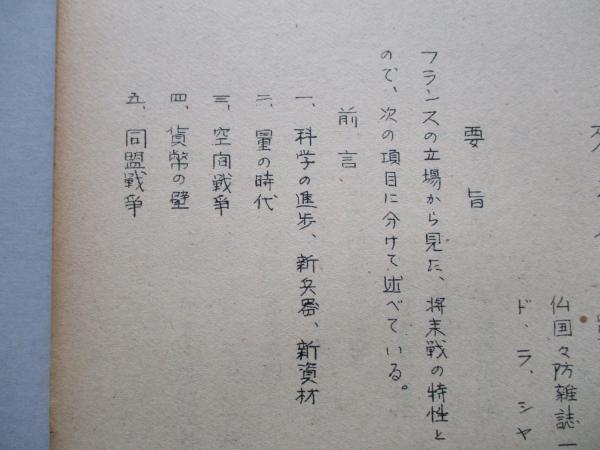 仏国々防雑誌
ド、ラ、シャ
要旨
フランスの立場から見た、将来戦の特性と
ので、次の項目に分けて述べている。
前言
一、科学の進歩、新兵器、新資材
二、量の時代
三、空间戦争
四、貨幣の壁
五、同盟戦争